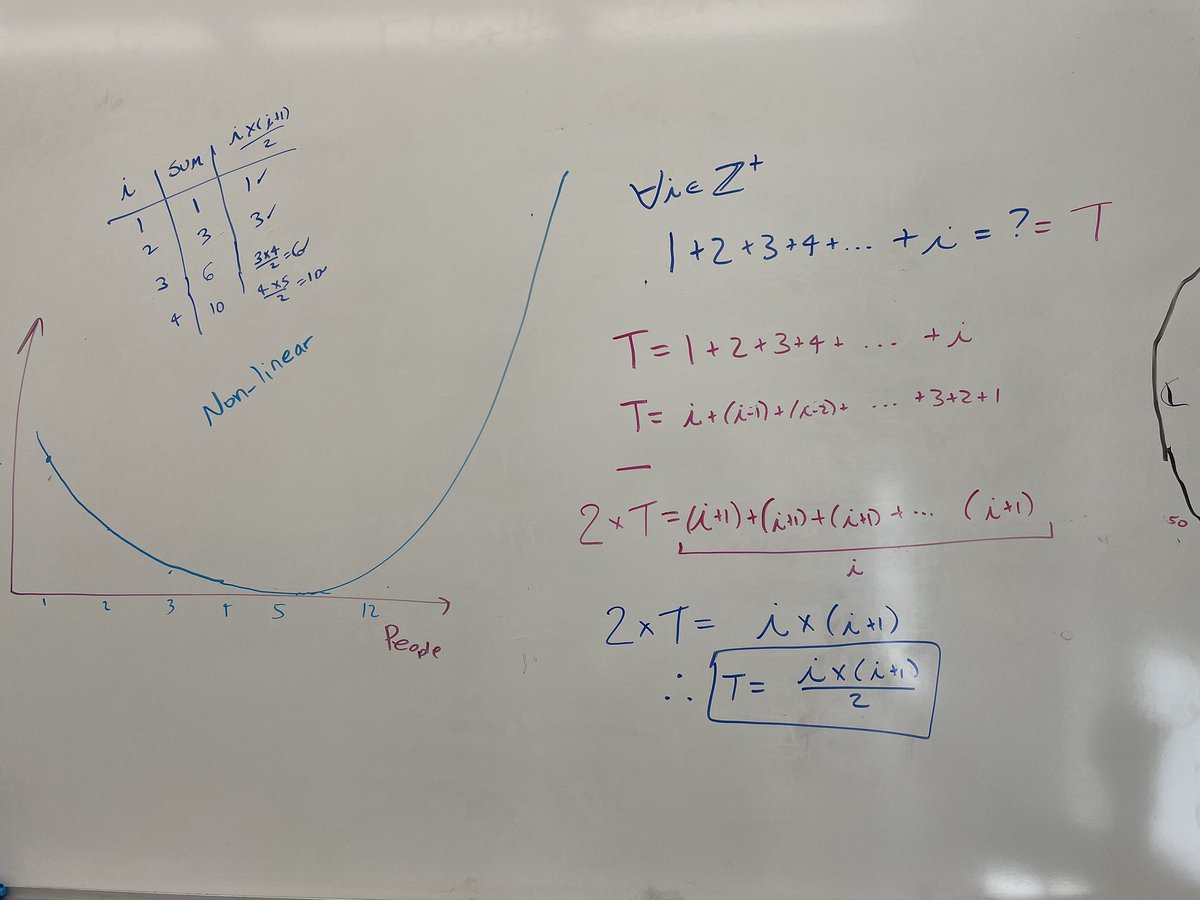 i | SUM | i×(i+1)/2
1 | 1 | 1✓
2 | 3 | 3✓
3 | 6 | 3×4/2=6✓
4 | 10 | 4×5/2=10✓
Non-linear
1 2 3 4 5 12
People
∀i∈ℤ⁺
1+2+3+4+... +i=?=T
T=1+2+3+4+ ... +i
T=i+(i-1)+(i-2)+ ... +3+2+1
2×T=(i+1)+(i+1)+(i+1)+... (i+1)
i
2×T= i×(i+1)
∴ T= i×(i+1)/2
50